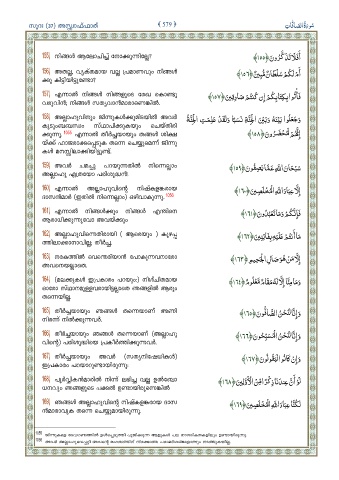 സൂറ: (37) അസ്സ്വാഫ്ഫാത്ത്
﴾ 579 ﴿
سُورَةُ الصَّافَّات
155) നിങ്ങള്‍ ആലോചിച്ച് നോക്കുന്നില്ലേ?
أَفَلَا تَذَكَّرُونَ ﴿١٥٥﴾
156) അതല്ല, വ്യക്തമായ വല്ല പ്രമാണവും നിങ്ങള്‍
ക്കു കിട്ടിയിട്ടുണ്ടോ?
أَمْ لَكُمْ سُلْطَانٌ مُبِينٌ ﴿١٥٦﴾
157) എന്നാല്‍ നിങ്ങള്‍ നിങ്ങളുടെ രേഖ കൊണ്ടു
വരുവിന്‍; നിങ്ങള്‍ സത്യവാന്‍മാരാണെങ്കില്‍.
فَأْتُوا بِكِتَابِكُمْ إِنْ كُنْتُمْ صَادِقِينَ ﴿١٥٧﴾
158) അല്ലാഹുവിനും ജിന്നുകള്‍ക്കുമിടയില്‍ അവര്‍
കുടുംബബന്ധം സ്ഥാപിക്കുകയും ചെയ്തിരി
ക്കുന്നു. എന്നാല്‍ തീര്‍ച്ചയായും തങ്ങള്‍ ശിക്ഷ
യ്ക്ക് ഹാജരാക്കപ്പെടുക തന്നെ ചെയ്യുമെന്ന് ജിന്നു
കള്‍ മനസ്സിലാക്കിയിട്ടുണ്ട്.
وَجَعَلُوا بَيْنَهُ وَبَيْنَ الْجِنَّةِ نَسَبًا وَلَقَدْ عَلِمَتِ الْجِنَّةُ
إِنَّهُمْ لَمُحْضَرُونَ ﴿١٥٨﴾
159) അവര്‍ ചമച്ചു പറയുന്നതില്‍ നിന്നെല്ലാം
അല്ലാഹു എത്രയോ പരിശുദ്ധന്‍.
سُبْحَانَ اللَّهِ عَمَّا يَصِفُونَ ﴿١٥٩﴾
160) എന്നാല്‍ അല്ലാഹുവിന്റെ നിഷ്കളങ്കരായ
ദാസന്‍മാര്‍ (ഇതില്‍ നിന്നെല്ലാം) ഒഴിവാകുന്നു.
إِلَّا عِبَادَ اللَّهِ الْمُخْلَصِينَ ﴿١٦٠﴾
161) എന്നാല്‍ നിങ്ങള്‍ക്കും നിങ്ങള്‍ എന്തിനെ
ആരാധിക്കുന്നുവോ അവയ്ക്കും
فَإِنَّكُمْ وَمَا تَعْبُدُونَ ﴿١٦١﴾
162) അല്ലാഹുവിന്നെതിരായി ( ആരെയും ) കുഴപ്പ
ത്തിലാക്കാനാവില്ല; തീര്‍ച്ച.
مَا أَنْتُمْ عَلَيْهِ بِفَاتِنِينَ ﴿١٦٢﴾
163) നരകത്തില്‍ വെന്തെരിയാന്‍ പോകുന്നവനാരോ
അവനെയല്ലാതെ.
إِلَّا مَنْ هُوَ صَالِ الْجَحِيمِ ﴿١٦٣﴾
164) (മലക്കുകള്‍ ഇപ്രകാരം പറയും:) നിശ്ചിതമായ
ഓരോ സ്ഥാനമുള്ളവരായിട്ടല്ലാതെ ഞങ്ങളില്‍ ആരും
തന്നെയില്ല.
وَمَا مِنَّا إِلَّا لَهُ مَقَامٌ مَعْلُومٌ ﴿١٦٤﴾
165) തീര്‍ച്ചയായും ഞങ്ങള്‍ തന്നെയാണ് അണി
നിരന്ന് നില്‍ക്കുന്നവര്‍.
وَإِنَّا لَنَحْنُ الصَّافُّونَ ﴿١٦٥﴾
166) തീര്‍ച്ചയായും ഞങ്ങള്‍ തന്നെയാണ് (അല്ലാഹു
വിന്റെ) പരിശുദ്ധിയെ പ്രകീര്‍ത്തിക്കുന്നവര്‍.
وَإِنَّا لَنَحْنُ الْمُسَبِّحُونَ ﴿١٦٦﴾
167) തീര്‍ച്ചയായും അവര്‍ (സത്യനിഷേധികള്‍)
ഇപ്രകാരം പറയാറുണ്ടായിരുന്നു:
وَإِنْ كَانُوا لَيَقُولُونَ ﴿١٦٧﴾
168) പൂര്‍വ്വികന്‍മാരില്‍ നിന്ന് ലഭിച്ച വല്ല ഉല്‍ബോ
ധനവും ഞങ്ങളുടെ പക്കല്‍ ഉണ്ടായിരുന്നെങ്കില്‍
لَوْ أَنَّ عِنْدَنَا ذِكْرًا مِنَ الْأَوَّلِينَ ﴿١٦٨﴾
169) ഞങ്ങള്‍ അല്ലാഹുവിന്റെ നിഷ്കളങ്കരായ ദാസ
ന്‍മാരാവുക തന്നെ ചെയ്യുമായിരുന്നു.
لَكُنَّا عِبَادَ اللَّهِ الْمُخْلَصِينَ ﴿١٦٩﴾